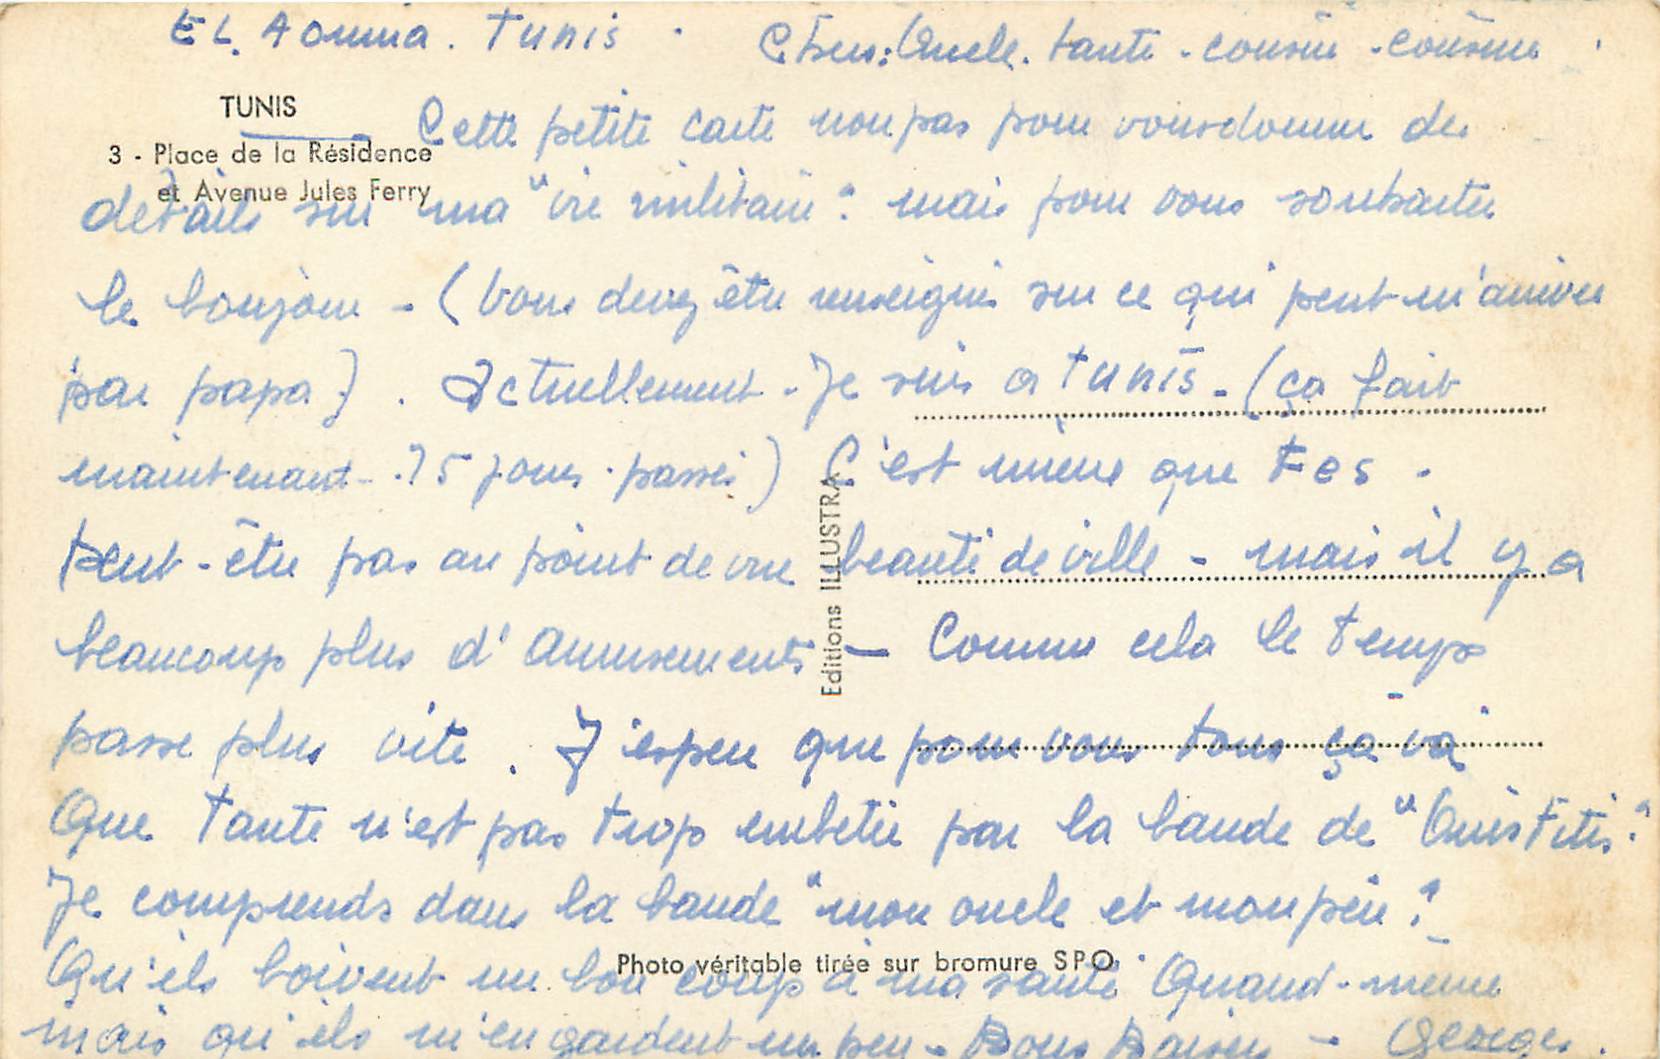 EL Aouina. Tunis.
Chers: Oncle. tante - cousin - cousine
TUNIS
3 - Place de la Résidence
et Avenue Jules Ferry
Cette petite carte non pas pour vous donner des
détails sur ma "vie militaire". mais pour vous souhaiter
le bonjour - (Vous devez être renseignés sur ce qui peut m'arriver
par papa). Actuellement - Je suis a Tunis - (ça fait
maintenant 15 jours passés) C'est mieux que Fes.
peut-être pas au point de vue beauté de ville - mais il y a
beaucoup plus d'amusements - Comme cela le temps
passe plus vite. J'espère que pour vous tous ça va
Que Tante n'est pas trop embetée par la bande de "Ouistitis".
Je comprends dans la bande "mon oncle et mon père".
Qu'ils boivent un bon coup à ma santé Quand-meme
mais qu'ils m'en gardent un peu - Bons Baisers - Georges.
Editions ILLUSTRA
Photo véritable tirée sur bromure SPO